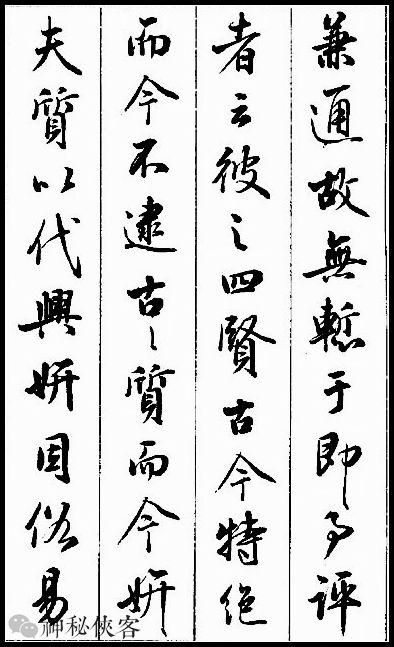 兼通故無慙于即事評
者云彼之四賢古今特絕
而今不逮古々質而今妍
夫質以代興妍因俗易
神秘俠客